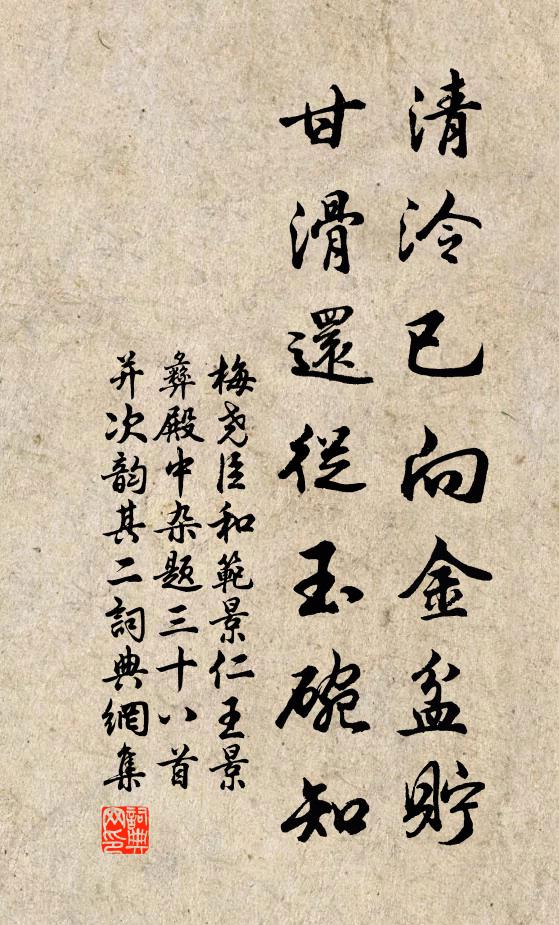 清泠已向金盆貯
甘滑還從玉碗知
梅尧臣和範景仁王景
彝殿中杂题三十八首
并次韵其二詞典網集
詞典
网印